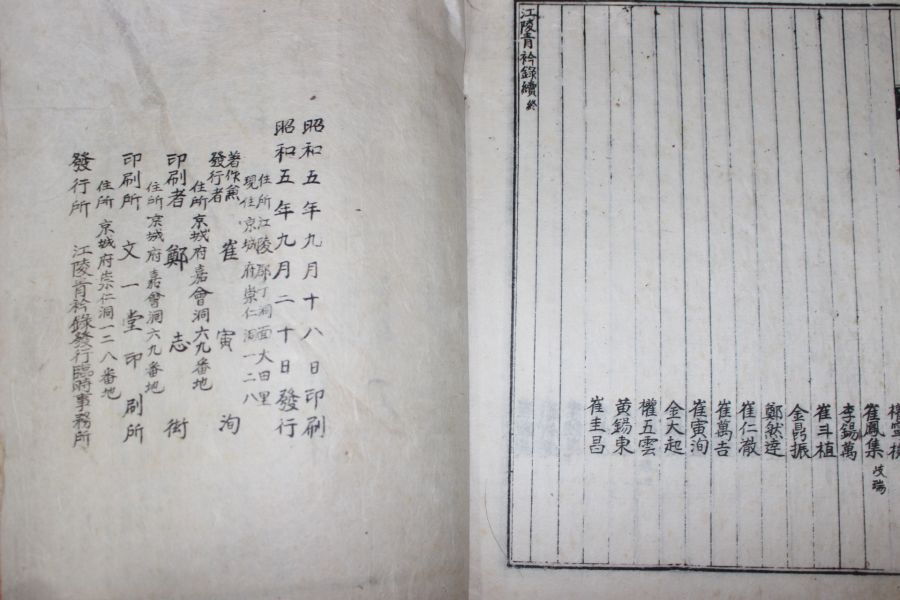 崔鳳集
李錫萬
崔斗植
金昻振
鄭然達
崔仁澈
崔萬吉
崔寅洵
金大起
權五雲
黃錫東
崔圭昌
江陵青衿錄續 終
昭和五年九月十八日印刷
昭和五年九月二十日發行
住所江陵郡丁洞面大田里
現住京城府崇仁洞一二八
著作兼
發行者 崔寅洵
住所京城府嘉會洞六九番地
印刷者 鄭志
住所京城府嘉會洞六九番地
印刷所 文一堂印刷所
住所京城府崇仁洞一二八番地
發行所 江陵青衿錄發行臨時事務所